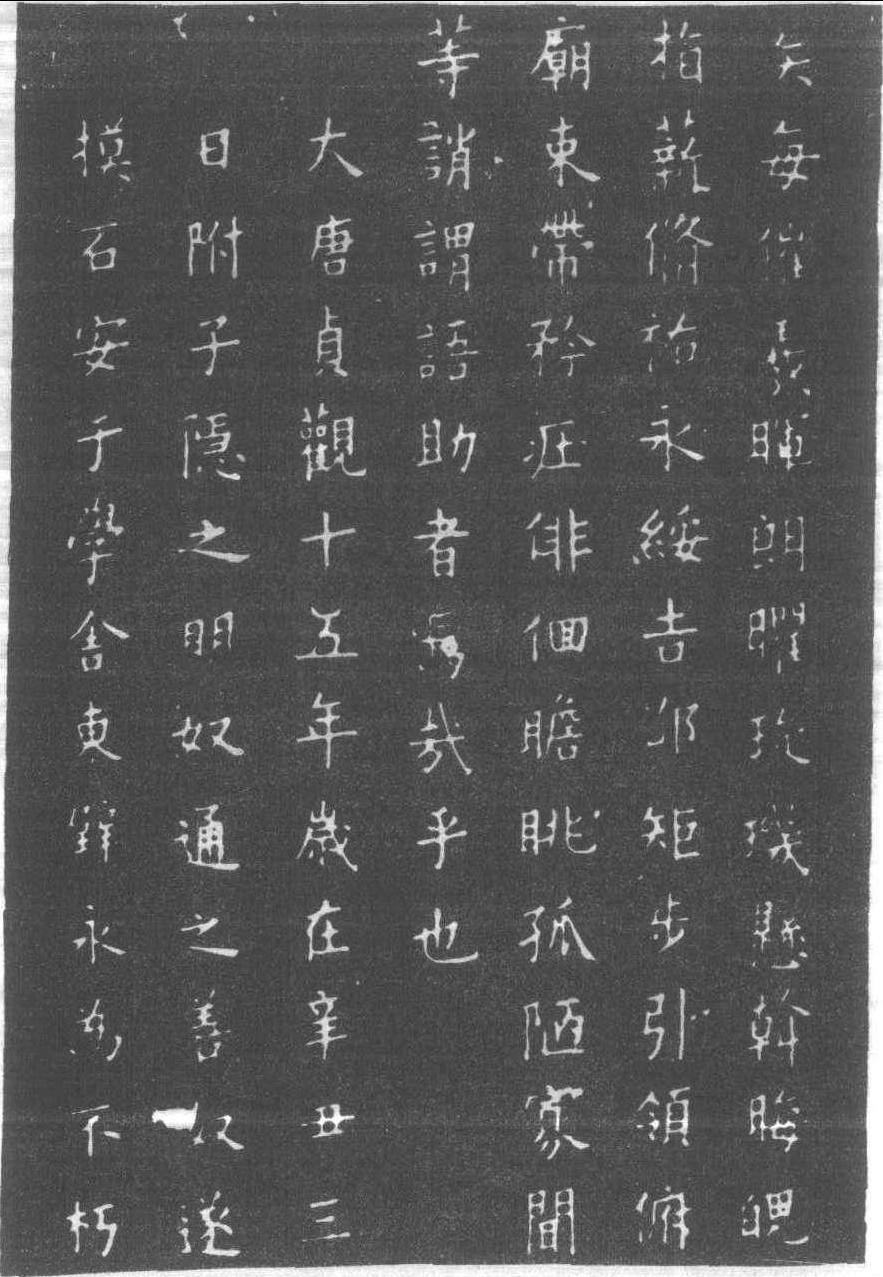 矢每催羲暉朗曜琁璣懸斡晦魄
指薪脩祜永綏吉邵矩步引領俯
廟束帶矜疘俳佪瞻眺孤陋寡聞
等誚謂語助者焉哉乎也
大唐貞觀十五年歲在辛丑三
日附子隱之明奴通之善奴遂
摸石安于學舍東壁永為不朽